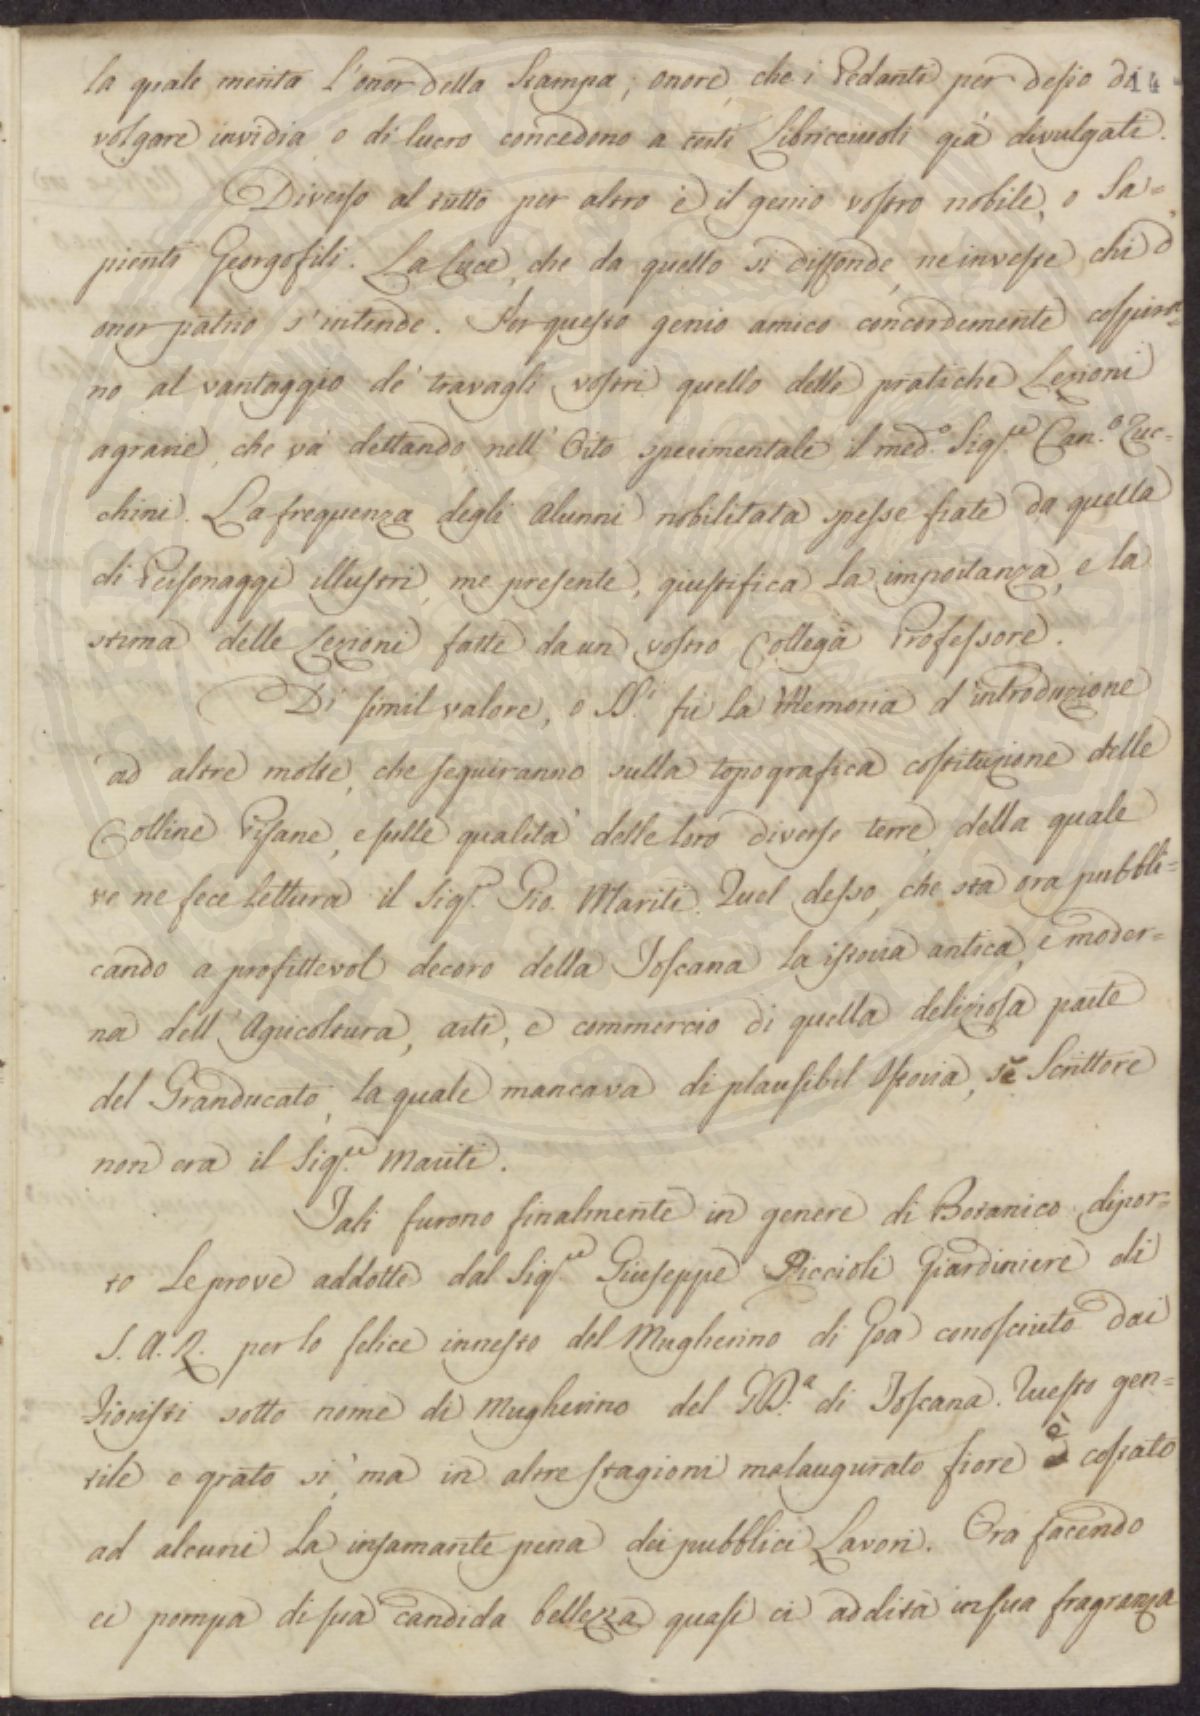 la quale merita l'onor della Stampa; onore, che i Pedanti per desio di 14
volgare invidia o di lucro concedono a certi Libricciuoli già divulgati.
Diverso al tutto per altro è il genio vostro nobile, o Sa=
pienti Georgofili. La Luce, che da quello si diffonde, ne investe chi d
onor patrio s'intende. Per questo genio amico concordemente cospira=
no al vantaggio de' travagli vostri quello delle pratiche Lezioni
agrarie, che và dettando nell'Orto sperimentale il med.º Sig.re Can.º Zuc=
chini. La frequenza degli Alunni nobilitata spesse fiate da quella
di Personaggi illustri, me presente, giustifica la importanza, e la
stima delle Lezioni fatte da un vostro Collega Professore.
Di simil valore, o SS.i fù la Memoria d'introduzione
ad altre molte, che seguiranno sulla topografica costituzione delle
Colline Pisane, e sulle qualità delle loro diverse terre, della quale
ve ne fece lettura il Sig.r Gio. Mariti. Quel desso, che sta ora pubbli=
cando a profittevol decoro della Toscana la istoria antica, e moder=
na dell'Agricoltura, arti, e commercio di quella deliziosa parte
del Granducato, la quale mancava di plausibil Istoria, se Scrittore
non era il Sig.re Mariti.
Tali furono finalmente in genere di Botanico dipor=
to le prove addotte dal Sig.re Giuseppe Piccioli Giardiniere di
S. A. R. per lo felice innesto del Mugherino di Goa conosciuto dai
Fioristi sotto nome di Mugherino del GD.a di Toscana. Questo gen=
tile e grato sì, ma in altre stagioni malaugurato fiore è costato
ad alcuni la infamante pena dei pubblici Lavori. Ora facendo
ci pompa di sua candida bellezza quasi ci addita in sua fragranza